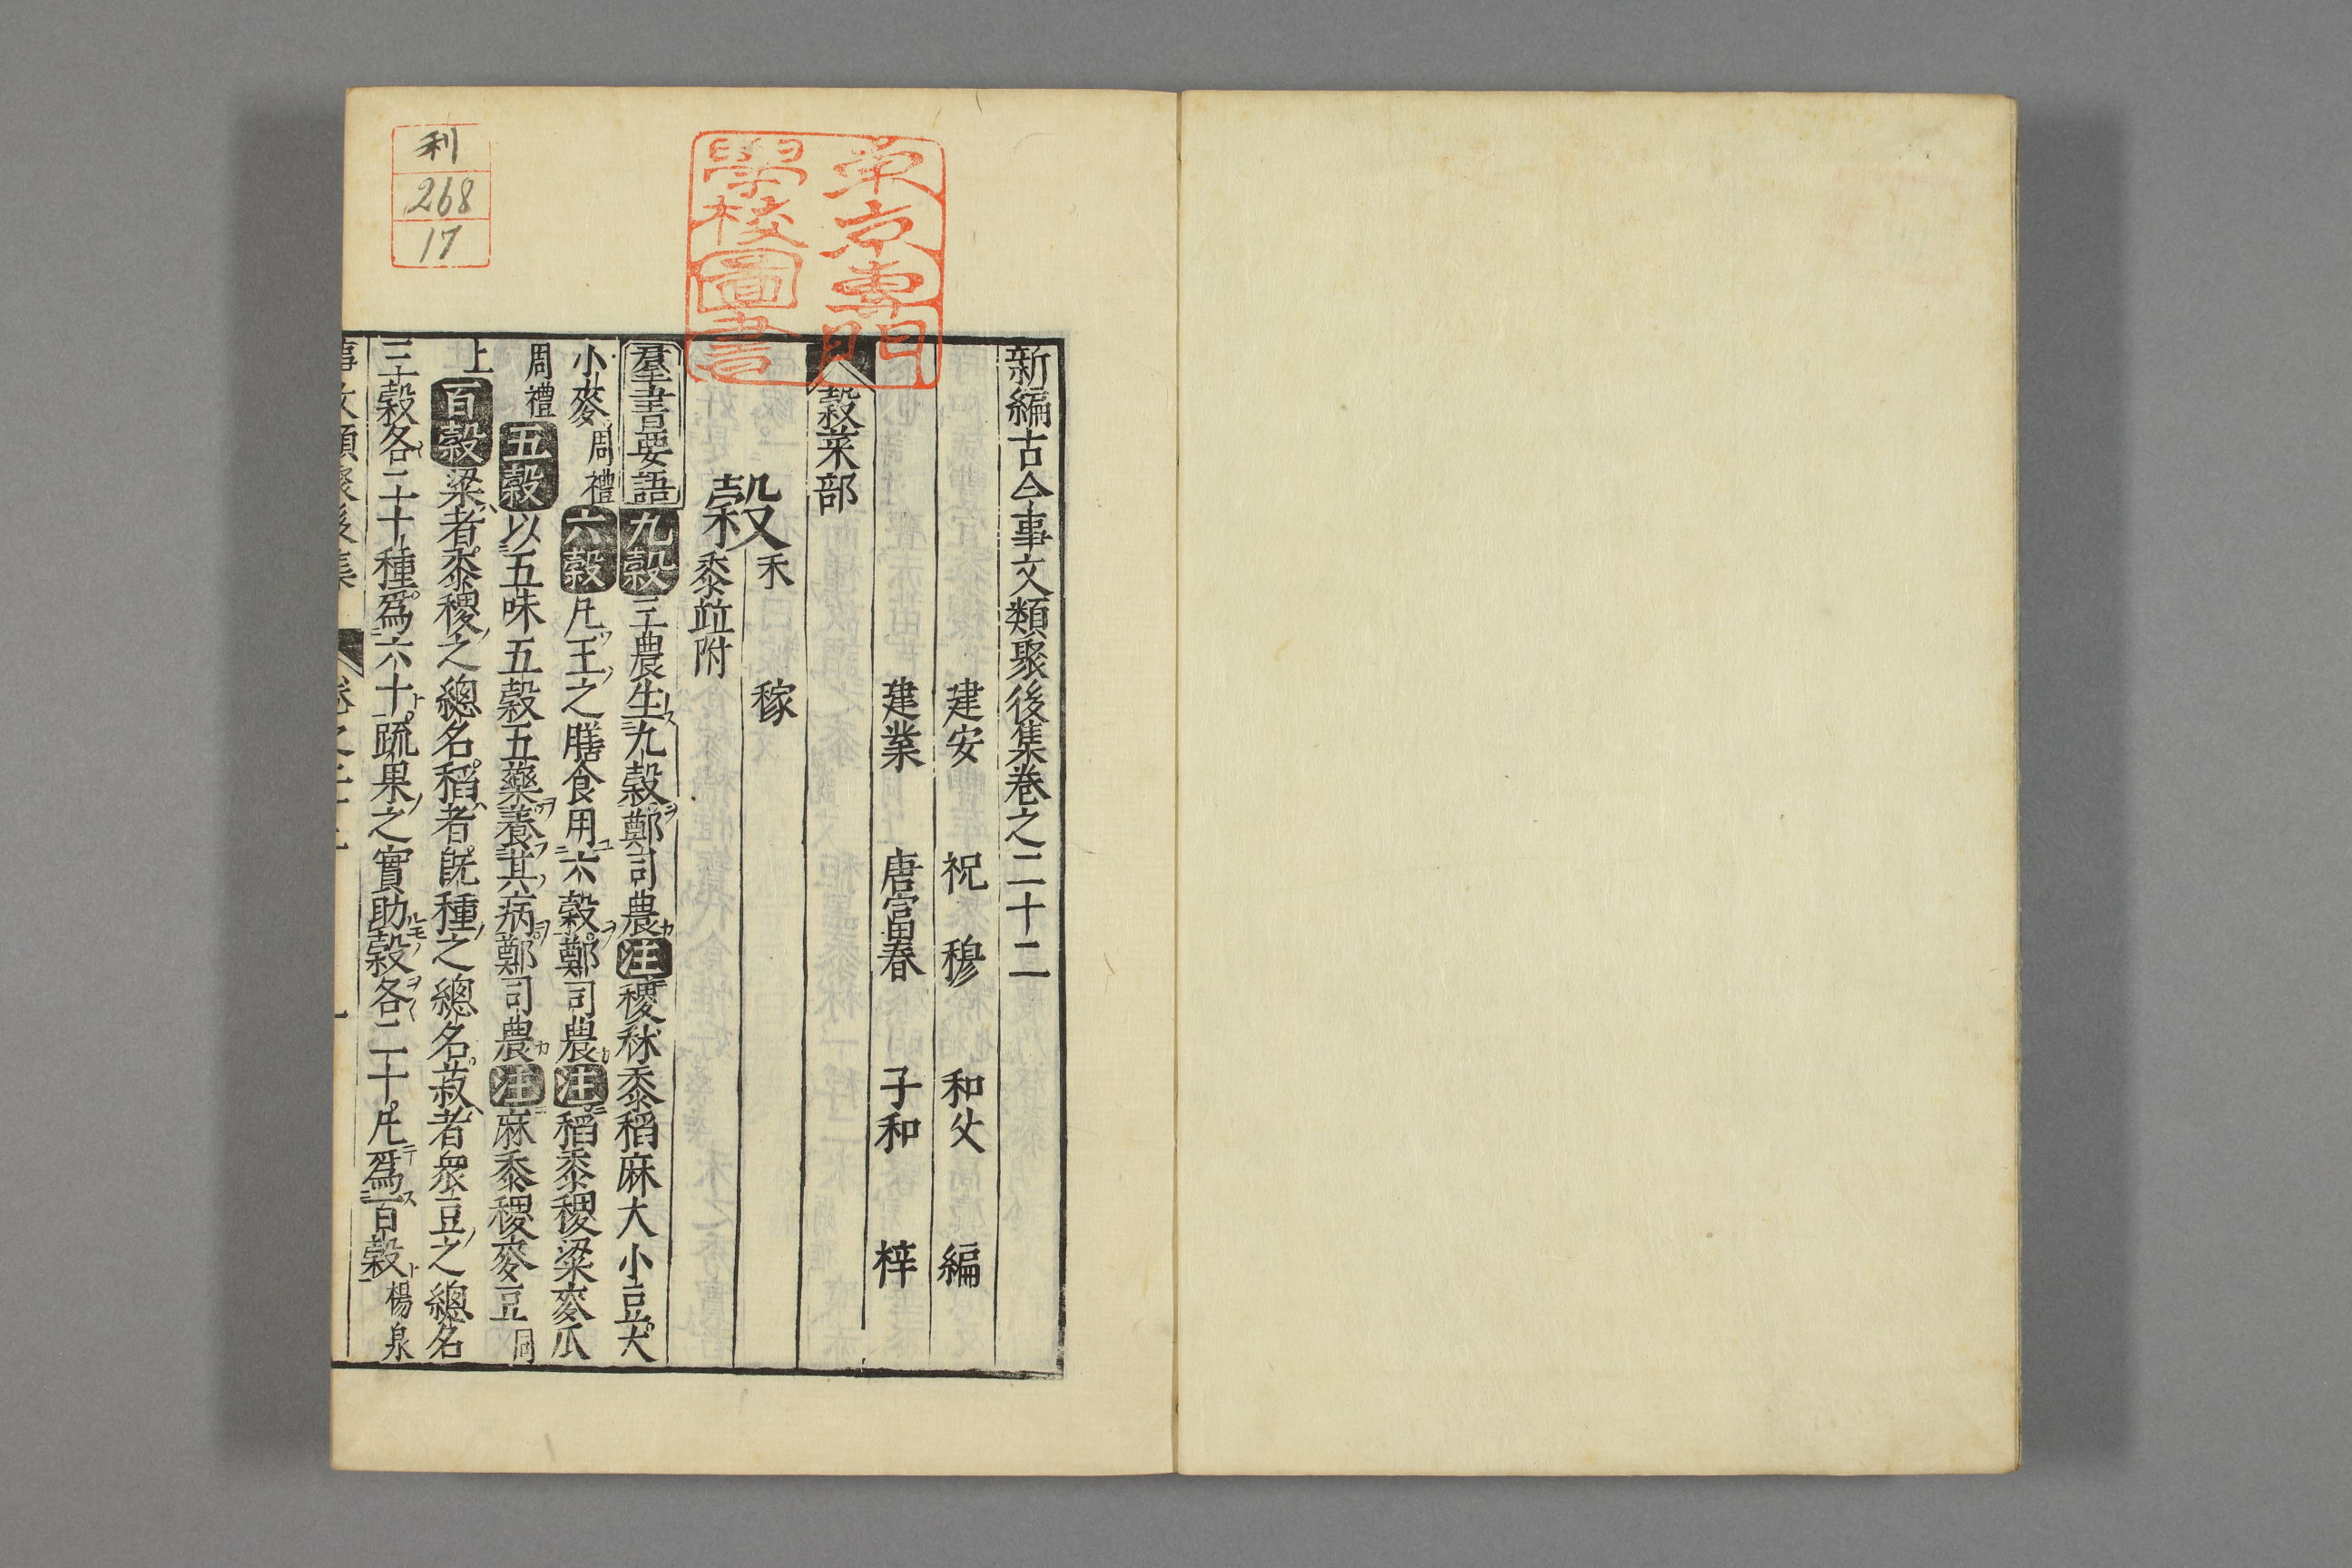 新編古今事文類聚後集卷之二十二
建安 祝 穆 和父 編
建業 唐富春 子和 梓
穀菜部
穀 禾 稼
黍竝附
羣書要語 九穀 三農生九穀鄭司農注稷秫黍稻麻大小豆大
小麥周禮 六穀 凡王之膳食用六穀鄭司農注稻黍稷粱麥瓜
周禮 五穀 以五味五穀五藥養其病鄭司農注麻黍稷麥豆同
上 百穀 梁者黍稷之總名稻者旣種之總名菽者衆豆之總名
三穀各二十種爲六十疏果之實助穀各二十凡爲百穀楊泉
東京專門
學校圖書
利
268
17